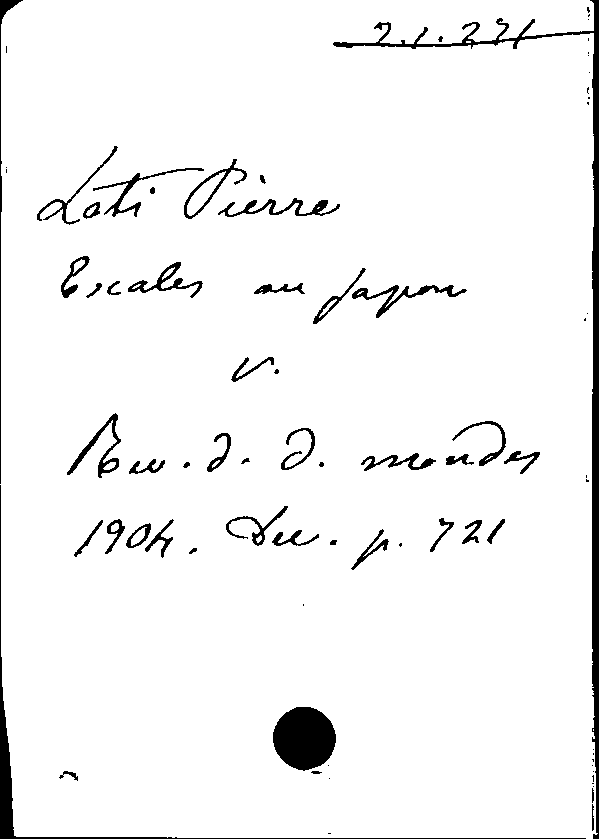 7.1.271
Loti Pierre
Escales au Japon
v.
Rev. d. d. mondes
1904. Dec. p. 721